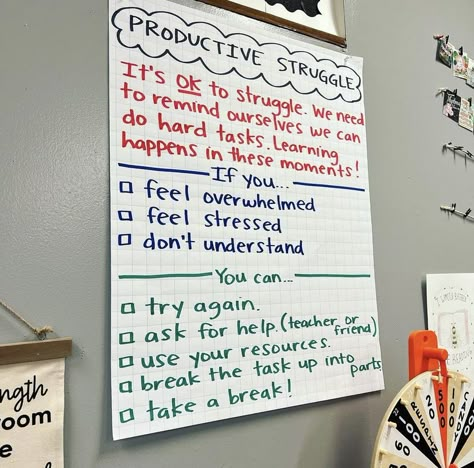 PRODUCTIVE STRUGGLE
It's OK to struggle. We need
to remind ourselves we can
do hard tasks. Learning
happens in these moments!
If you...
feel overwhelmed
feel stressed
don't understand
You can...
try again.
ask for help. (teacher or friend)
use your resources.
break the task up into parts
take a break!
ngth
room
e